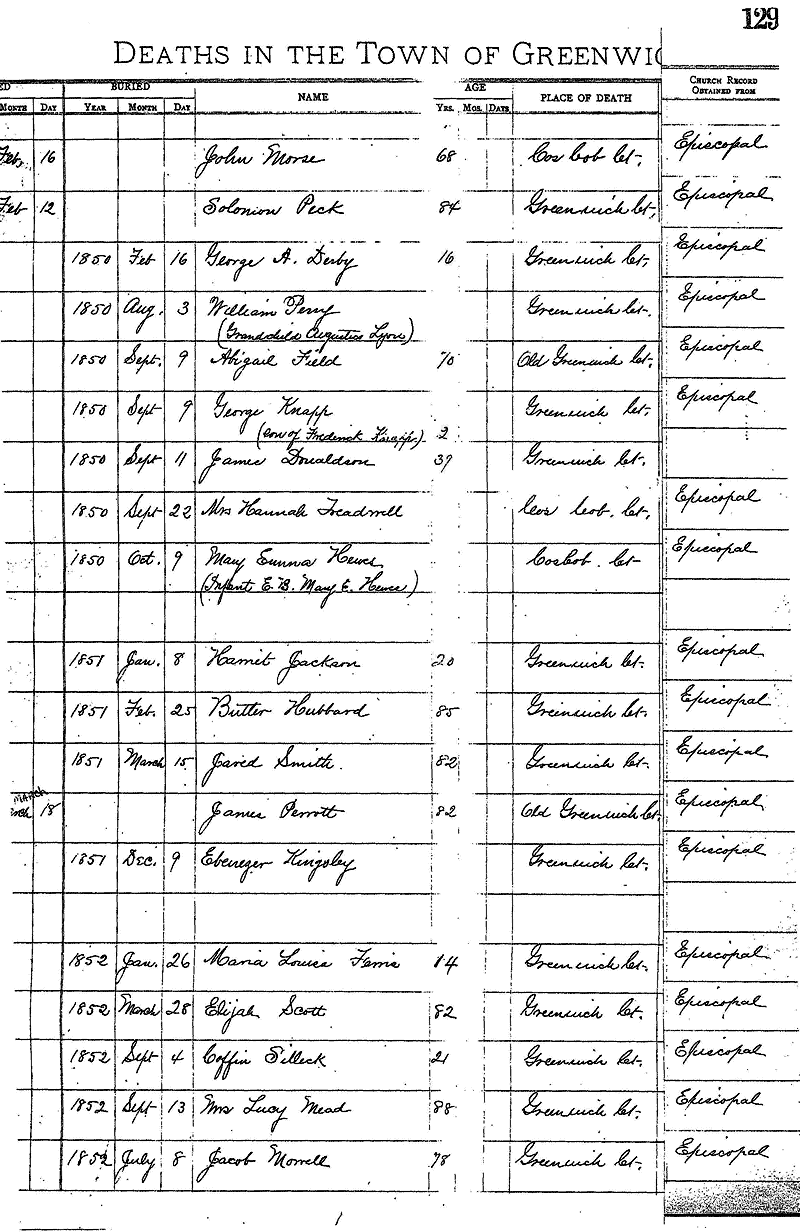 129
DEATHS IN THE TOWN OF GREENWIC
ED BURIED NAME AGE PLACE OF DEATH CHURCH RECORD OBTAINED FROM
MONTH DAY YEAR MONTH DAY YRS. MOS. DAYS
Feb. 16 John Morse 68 Cos Cob Ct. Episcopal
Feb 12 Solomon Peck 84 Greenwich Ct, Episcopal
1850 Feb 16 George A. Derby 16 Greenwich Ct, Episcopal
1850 Aug. 3 William Perry Greenwich Ct. Episcopal
(Grandchild Augustus Lyon)
1850 Sept. 9 Abigail Field 70 Old Greenwich Ct. Episcopal
1850 Sept 9 George Knapp Greenwich Ct. Episcopal
(son of Frederick Knapp) 2
1850 Sept 11 James Donaldson 39 Greenwich Ct.
1850 Sept 22 Mrs Hannah Treadwell Cos Cob. Ct, Episcopal
1850 Oct. 9 Mary Emma Hewes Coscob. Ct Episcopal
(Infant E. B. Mary E. Hewes)
1851 Jan. 8 Harriet Jackson 20 Greenwich Ct. Episcopal
1851 Feb. 25 Butler Hubbard 85 Greenwich Ct. Episcopal
1851 March 15 Jared Smith. 82 Greenwich Ct. Episcopal
MARCH
18 James Perrott 82 Old Greenwich Ct. Episcopal
1851 Dec. 9 Ebenezer Kingsley Greenwich Ct. Episcopal
1852 Jan. 26 Maria Louisa Ferris 14 Greenwich Ct. Episcopal
1852 March 28 Elijah Scott 82 Greenwich Ct. Episcopal
1852 Sept 4 Coffin Silleck 21 Greenwich Ct. Episcopal
1852 Sept 13 Mrs Lucy Mead 88 Greenwich Ct. Episcopal
1852 July 8 Jacob Morrell 78 Greenwich Ct. Episcopal